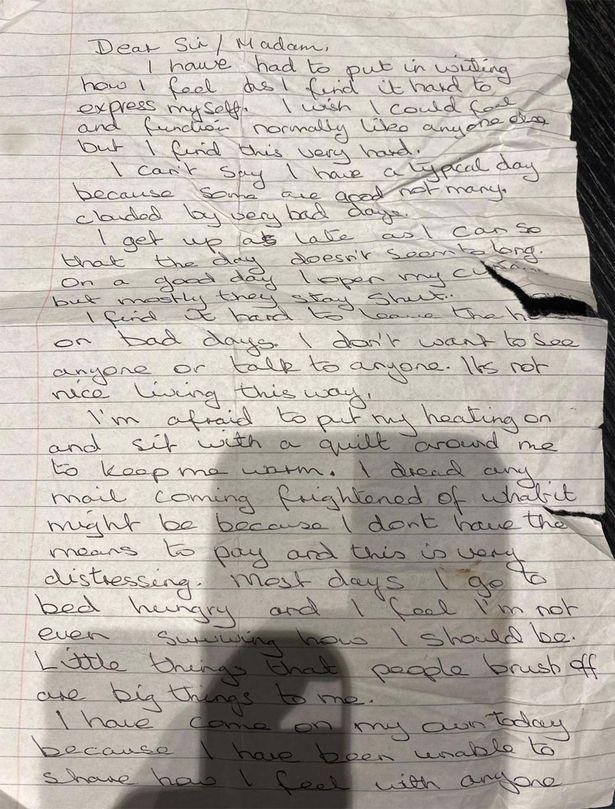 Dear Sir / Madam,
I have had to put in writing
how I feel as I find it hard to
express myself. I wish I could feel
and function normally like anyone else
but I find this very hard.
I can't say I have a typical day
because some are good not many.
clouded by very bad days.
I get up as late as I can so
that the day doesn't seem to long.
on a good day I open my
but mostly they stay shut..
I find it hard to leave the
on bad days. I don't want to see
anyone or talk to anyone. Its not
nice living this way.
I'm afraid to put my heating on
and sit with a quilt around me
to keep me warm. I dread any
mail coming frightened of what it
might be because I dont have the
means to pay and this is very
distressing. Most days I go to
bed hungry and I feel I'm not
even surviving how I should be.
Little things that people brush off
are big things to me.
I have come on my own today
because I have been unable to
share how I feel with anyone